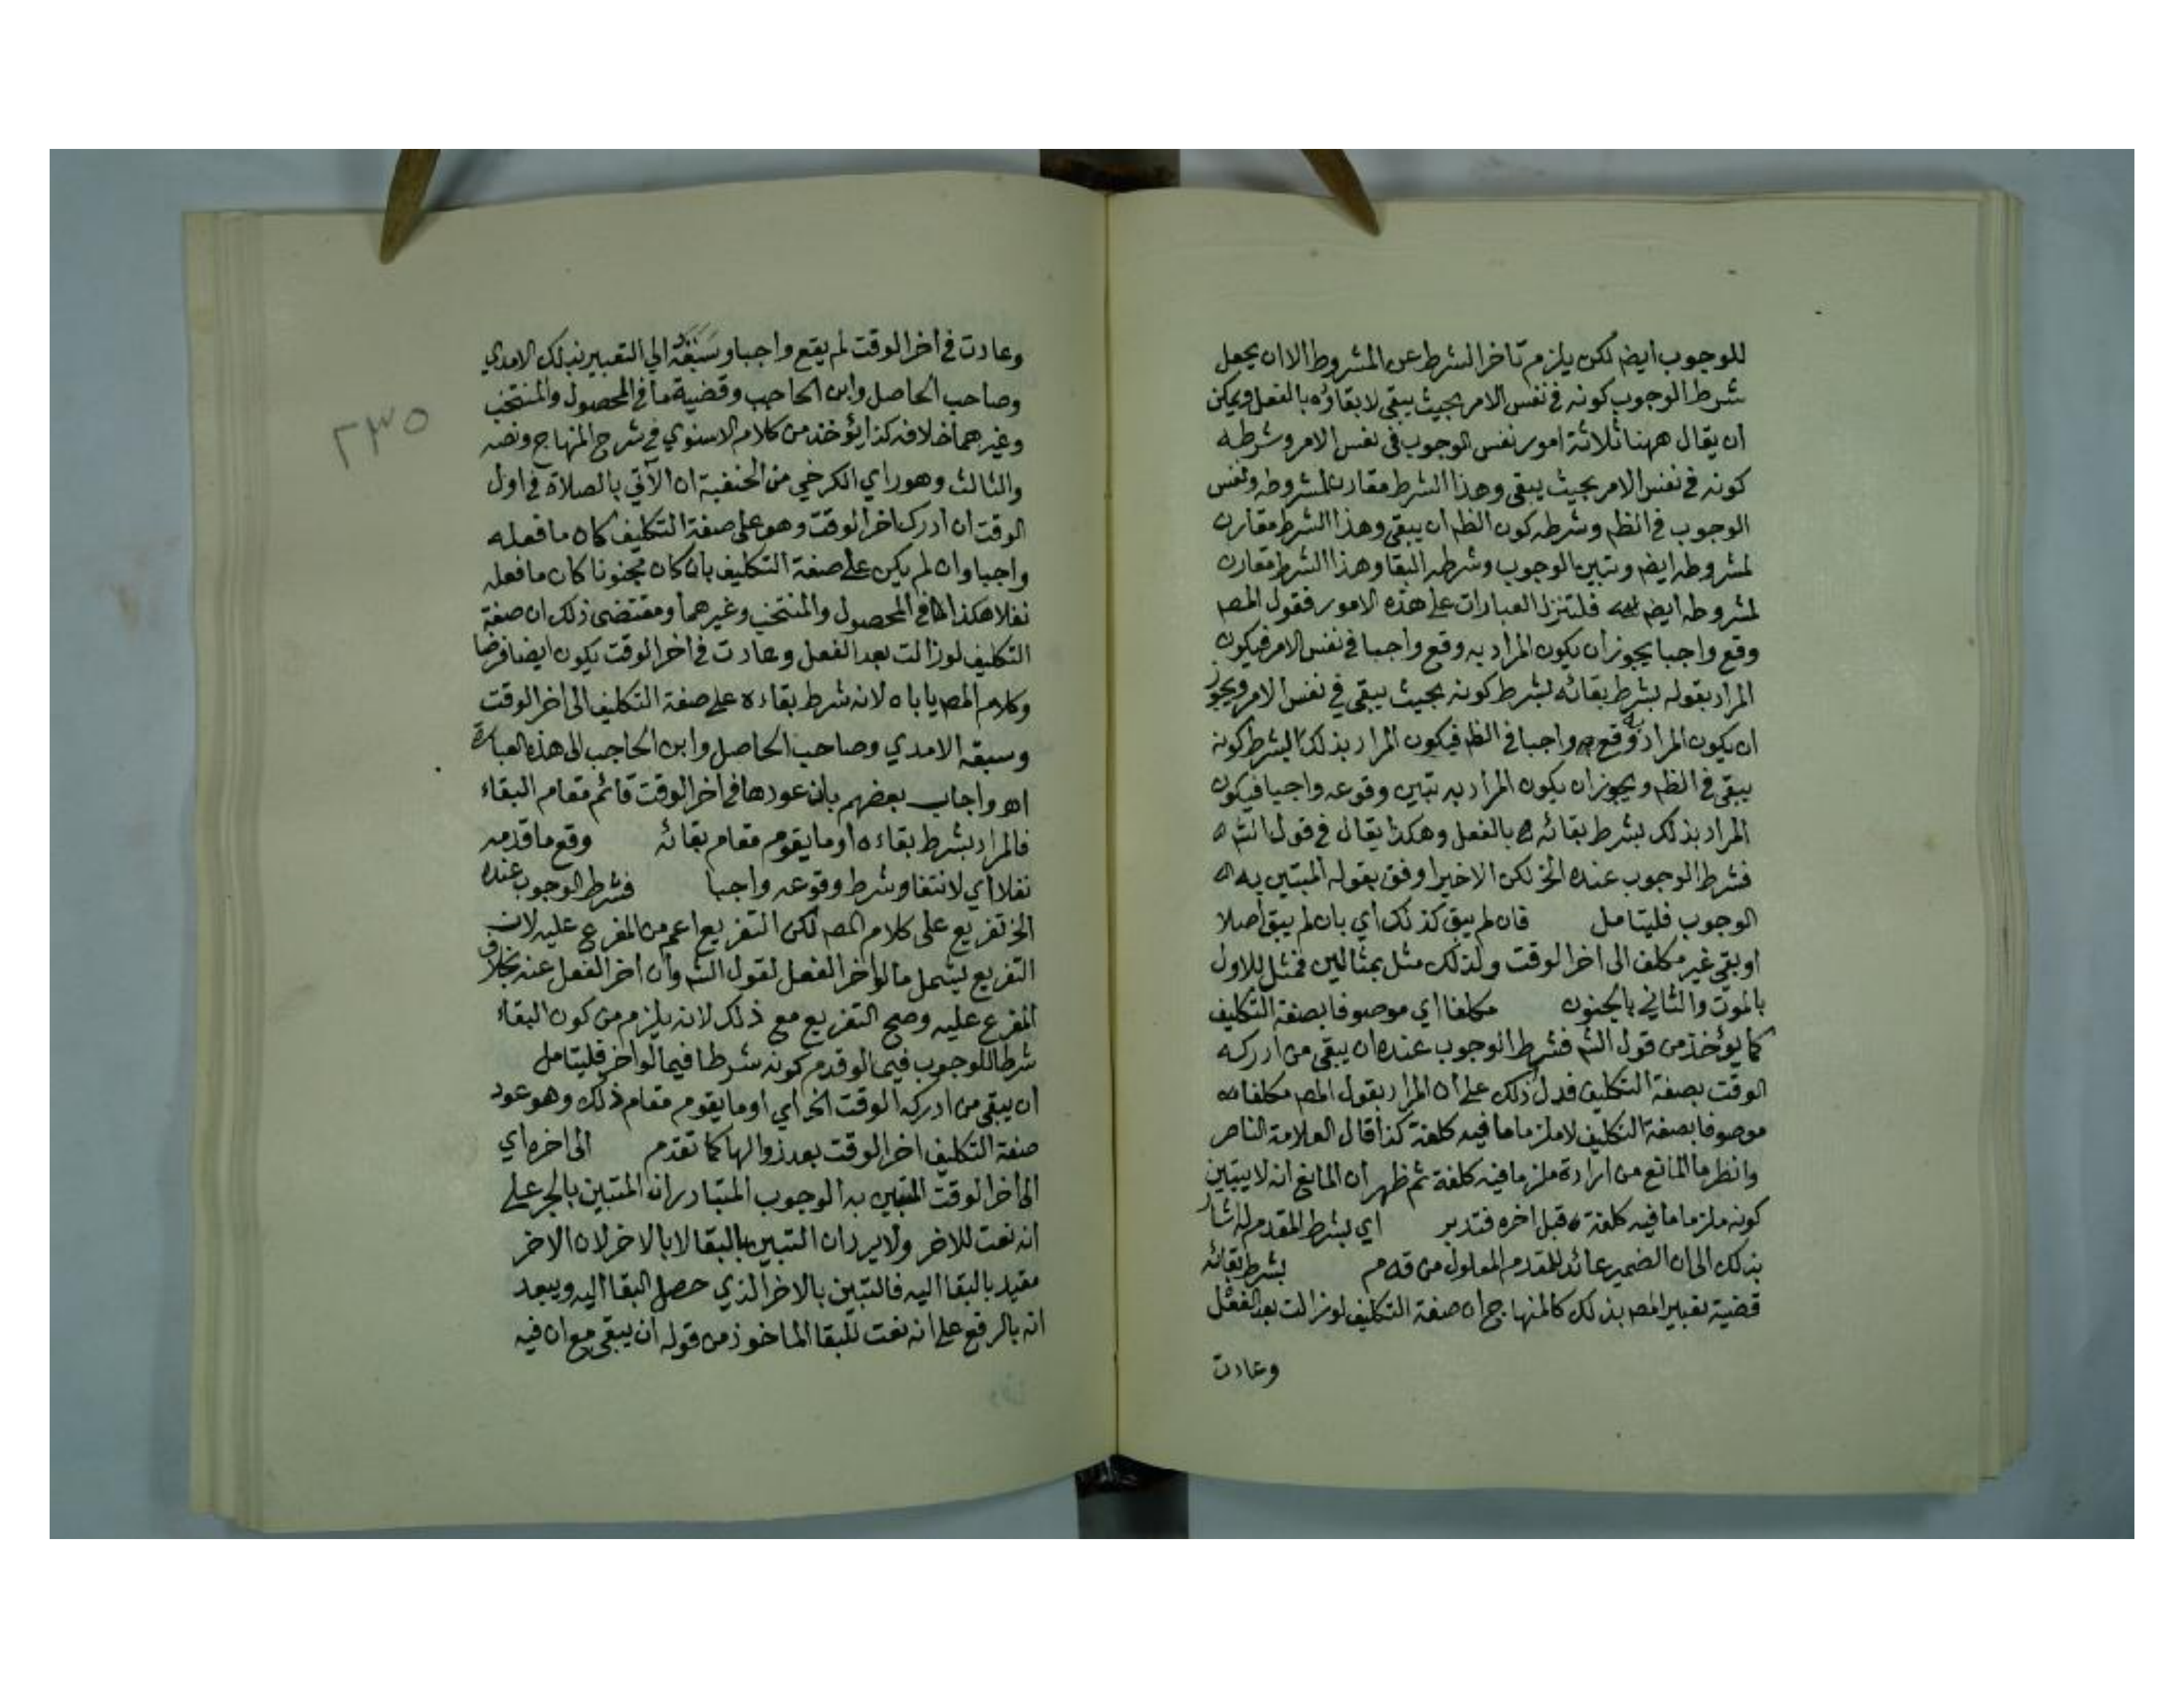 للوجوب ايضا لكن يلزم تاخر الشرط عن المشروط الا ان يجعل
شرط الوجوب كونه في نفس الامر بحيث يبقى لا بقاؤه بالفعل ويمكن
ان يقال ههنا ثلاثة امور نفس الوجوب في نفس الامر وشرطه
كونه في نفس الامر بحيث يبقى وهذا الشرط مقارن لمشروطه ونفس
الوجوب في الظم وشرطه كون الظم ان يبقى وهذا الشرط مقارن
لمشروطه ايضم وتبين الوجوب وشرطه البقا وهذا الشرط مقارن
لمشروطه ايضم فلتنزل العبارات على هذه الامور فقول المصم
وقع واجبا يجوز ان يكون المراد به وقع واجبا في نفس الامر فيكون
المراد بقوله بشرط بقائه بشرط كونه بحيث يبقى في نفس الامر ويجوز
ان يكون المراد به وقع واجبا في الظم فيكون المراد بذلك الشرط كونه
يبقى في الظم ويجوز ان يكون المراد به تبين وقوعه واجبا فيكون
المراد بذلك بشرط بقائه بالفعل وهكذا يقال في قول الشم
فشرط الوجوب عنده الخ لكن الاخير اوفق بقوله المبتين به
الوجوب فليتامل فان لم يبق كذلك اي بان لم يبق اصلا
او بقي غير مكلف الى اخر الوقت ولذلك مثل بمثالين فمثل للاول
بالموت والثاني بالجنون مكلفا اي موصوفا بصفة التكليف
كما يؤخذ من قول الشم فشرط الوجوب عنده ان يبقى من ادركه
الوقت بصفة التكليف فدل ذلك على ان المراد بقول المصم مكلفا
موصوفا بصفة التكليف لا ملزما ما فيه كلفة كذا قال العلامة الناصر
وانظر ما المانع من ارادة ملزم ما فيه كلفة ثم ظهر ان المانع انه لا يتبين
كونه ملزما ما فيه كلفة قبل اخره فتدبر اي بشرط المقدم له اشار
بذلك الى ان الضمير عائد للمقدم المعلول من قدم بشرط بقائه
قضية تعبير المصم بذلك كالمنهاج ان صفة التكليف لو زالت بعد الفعل
وعادت
وعادت في اخر الوقت لم يقع واجبا وسبقه الى التعبير بذلك الامدي
وصاحب الحاصل وابن الحاجب وقضية ما في المحصول والمنتخب
وغيرهما خلافه كذا يؤخذ من كلام الاسنوي في شرح المنهاج ونصه
٢٣٥
والثالث وهو راي الكرخي من الحنفية ان الآتي بالصلاة في اول
الوقت ان ادرك اخر الوقت وهو على صفة التكليف كان ما فعله
واجبا وان لم يكن على صفة التكليف بان كان مجنونا كان ما فعله
نفلا هكذا في المحصول والمنتخب وغيرهما ومقتضى ذلك ان صفة
التكليف لو زالت بعد الفعل وعادت في اخر الوقت يكون ايضا فرضا
وكلام المصم ياباه لانه شرط بقاءه على صفة التكليف الى اخر الوقت
وسبقه الامدي وصاحب الحاصل وابن الحاجب الى هذه العبارة
اهـ واجاب بعضهم بان عودها في اخر الوقت قائم مقام البقاء
فالمراد بشرط بقاءه او ما يقوم مقام بقائه وقع ما قدمه
نفلا اي لانتفا وشرط وقوعه واجبا فشرط الوجوب عنده
الخ تفريع على كلام المصم لكن التفريع اعم من المفرع عليه لان
التفريع ليشمل ما لو اخر الفعل لقول الشم وان اخر الفعل عنه بخلاف
المفرع عليه وصح التفريع مع ذلك لانه يلزم من كون البقاء
شرطا للوجوب فيما لو قدم كونه شرطا فيما لو اخر فليتامل
ان يبقى من ادركه الوقت الخ اي او ما يقوم مقام ذلك وهو عود
صفة التكليف اخر الوقت بعد زوالها كما تقدم الى اخره اي
الى اخر الوقت المتبين به الوجوب المتبادر ان المتبين بالجر على
انه نعت للاخر ولا يرد ان التبين بالبقا لا بالاخر لان الاخر
مقيد بالبقا اليه فالتبين بالاخر الذي حصل البقا اليه ويبعد
انه بالرفع على انه نعت للبقا الماخوذ من قوله ان يبقى مع ان فيه